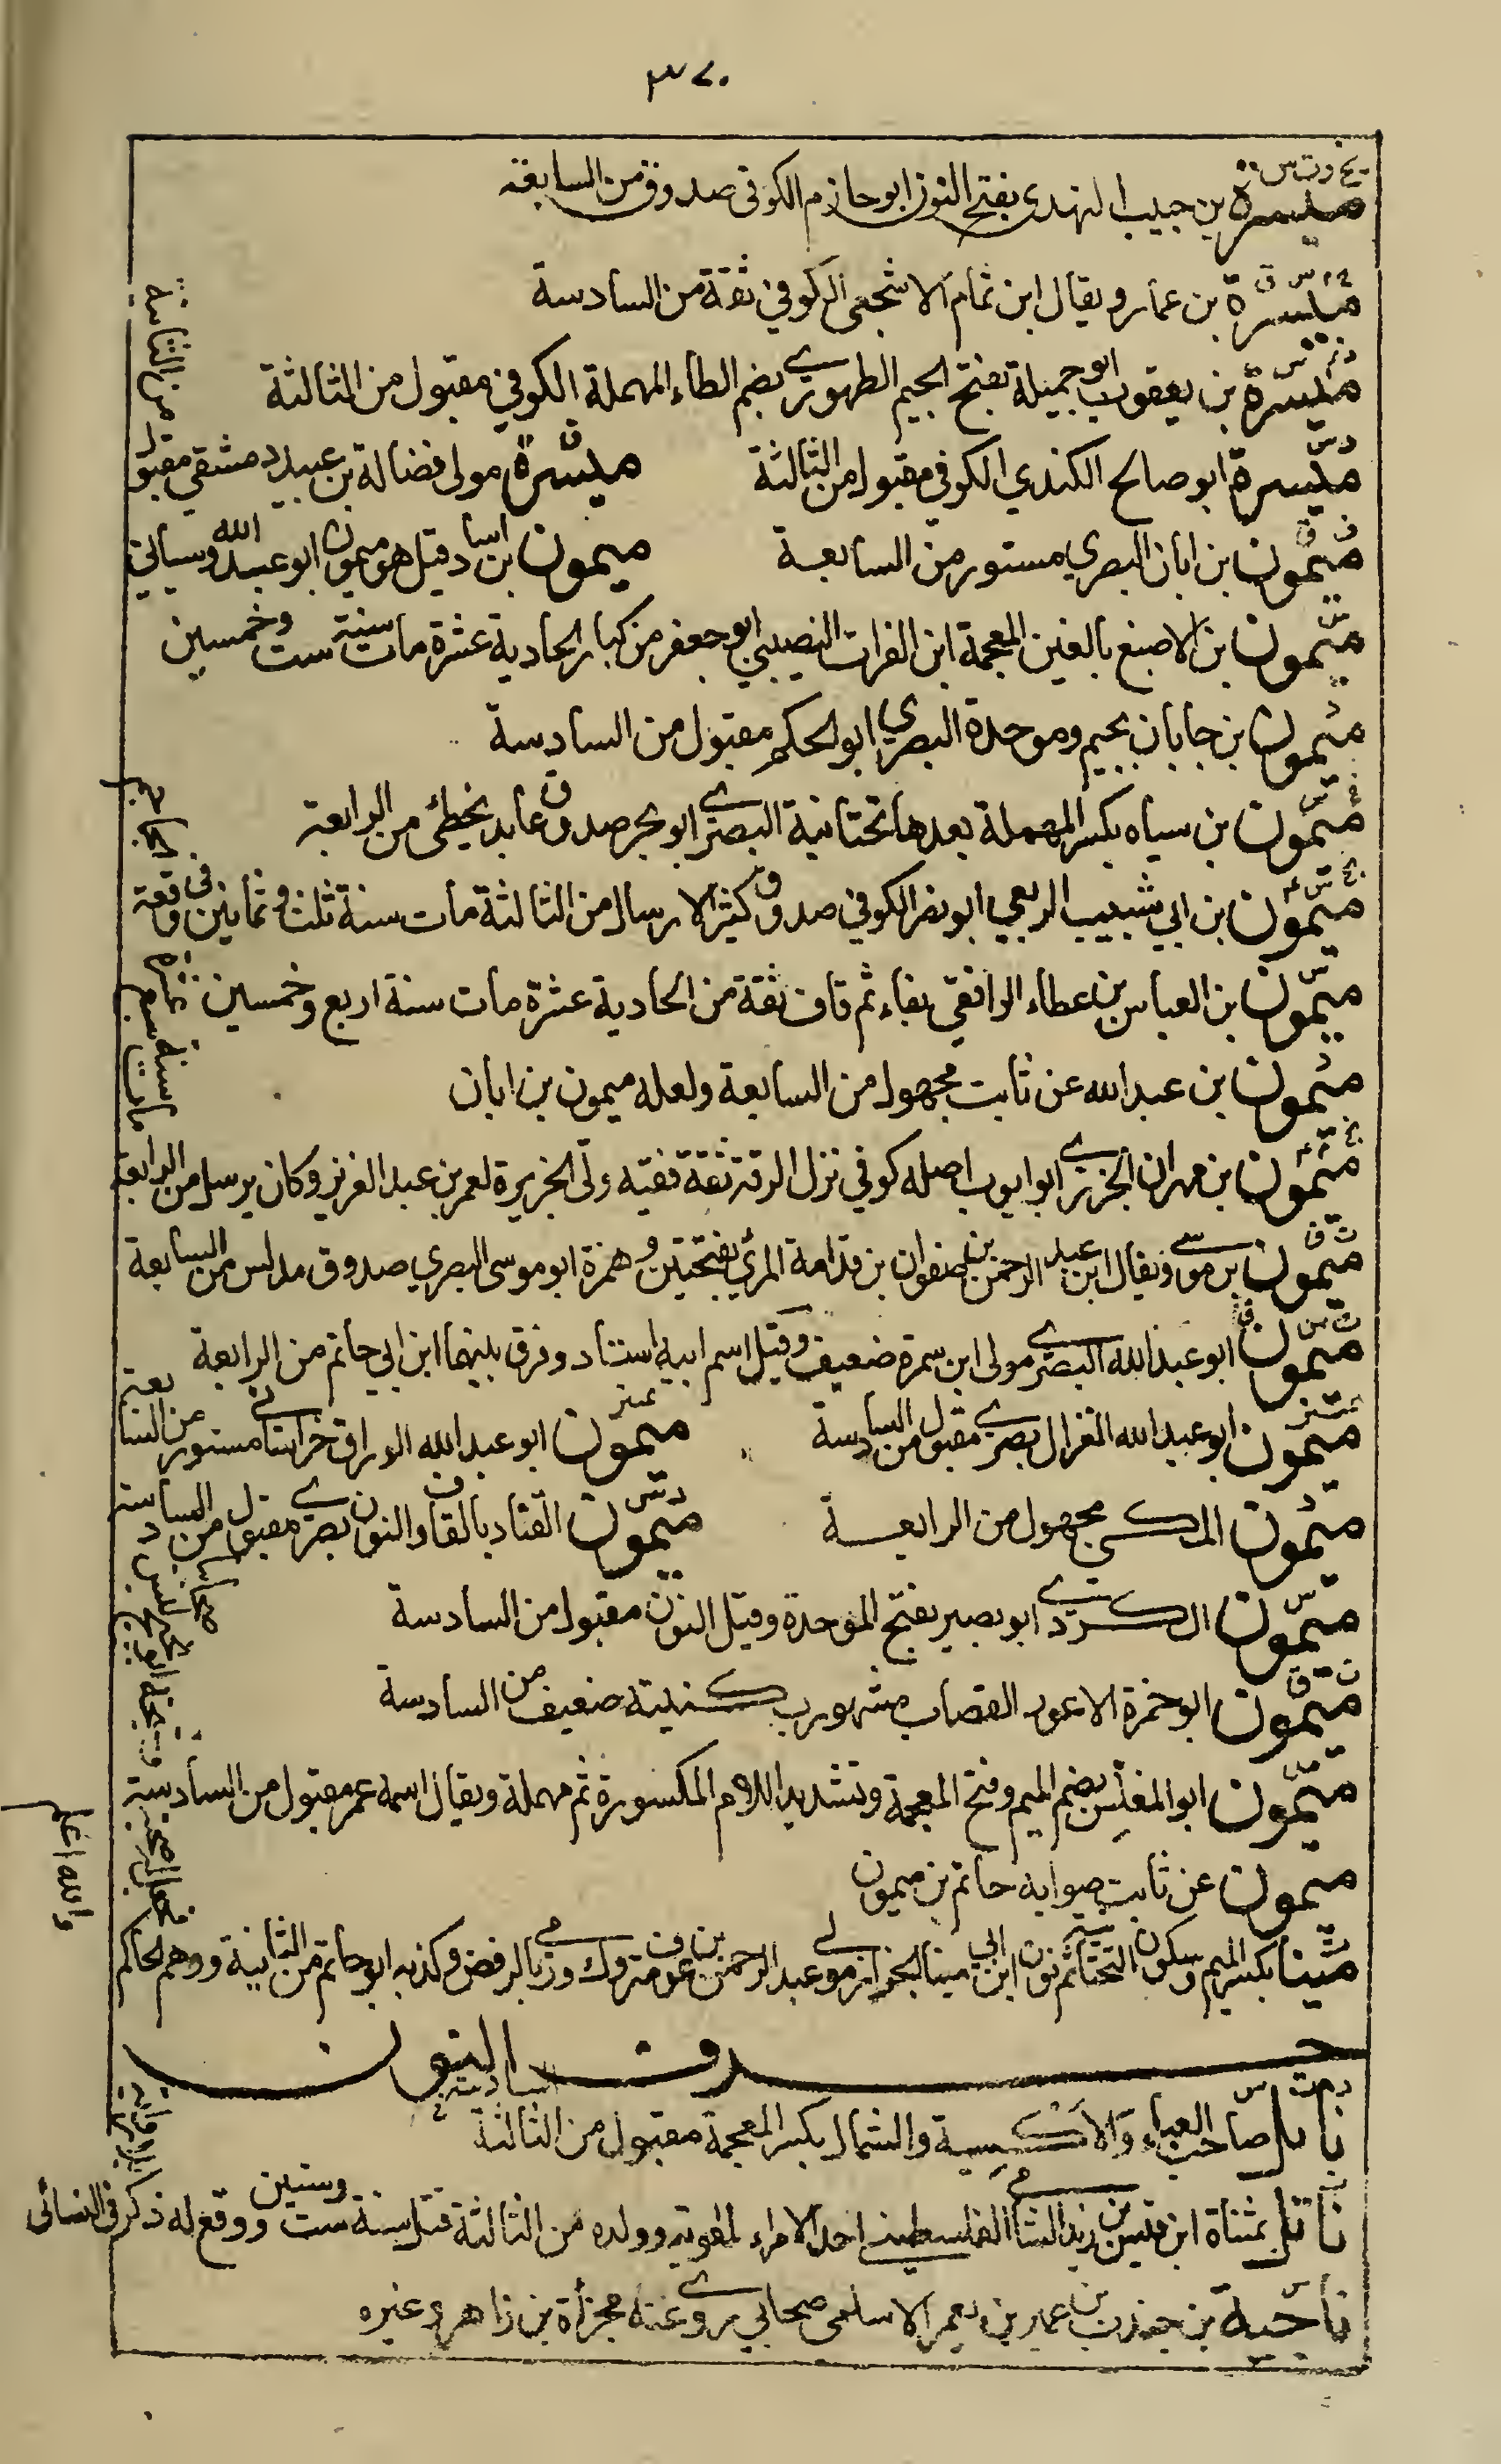 ٣٧٠
بخ د ت س
ميسرة بن حبيب النهدي بفتح النون ابو حازم الكوفي صدوق من السابعة
ميسرة بن عمار ويقال ابن تمام الاشجعي الكوفي ثقة من السادسة
ميسرة بن يعقوب ابو جميلة بفتح الجيم الطهوي بضم الطاء المهملة الكوفي مقبول من الثالثة
ميسرة ابو صالح الكندي الكوفي مقبول من الثالثة ميسرة مولى فضالة بن عبيد دمشقي مقبول
من الثامنة
ميمون بن ابان البصري مستور من السابعة ميمون ابن استاد قيل هو ميمون ابو عبد الله وسياتي
ميمون بن الاصبغ بالغين المعجمة ابن الفرات النصيبي ابو جعفر من كبار الحادية عشرة مات سنة ست وخمسين
ميمون بن جابان بجيم وموحدة البصري ابو الحكم مقبول من السادسة
ميمون بن سياه بكسر المهملة بعدها تحتانية البصري ابو بحر صدوق عابد يخطئ من الرابعة
ميمون بن ابي شبيب الربعي ابو نصر الكوفي صدوق كثير الارسال من الثالثة مات سنة ثلث وثمانين في وقعة
الجماجم
ميمون بن العباس بن عطاء الرافقي بفاء ثم قاف ثقة من الحادية عشرة مات سنة اربع وخمسين
ميمون بن عبد الله عن ثابت مجهول من السابعة ولعله ميمون بن ابان
ميمون بن مهران الجزري ابو ايوب اصله كوفي نزل الرقة ثقة فقيه ولي الجزيرة لعمر بن عبد العزيز وكان يرسل من الرابعة
مات سنة سبع عشرة
ميمون بن موسى ويقال ابن عبد الرحمن بن صفوان بن قدامة المرئي بفتحتين وهمزة ابو موسى البصري صدوق مدلس من السابعة
ميمون ابو عبد الله البصري مولى ابن سمرة ضعيف وقيل اسم ابيه استاد وفرق بينهما ابن ابي حاتم من الرابعة
ميمون ابو عبد الله الغزال بصري مقبول من السادسة ميمون ابو عبد الله الوراق خراساني مستور من السابعة
ميمون المكي مجهول من الرابعة ميمون القناد بالقاف والنون بصري مقبول من السادسة
ميمون الكردي ابو بصير بفتح الموحدة وقيل النون مقبول من السادسة
ميمون ابو حمزة الاعور القصاب مشهور بكنيته ضعيف من السادسة
ميمون ابو المغلس بضم الميم وفتح المعجمة وتشديد اللام المكسورة ثم مهملة ويقال اسمه عمر مقبول من السادسة
ميمون عن ثابت صوابه حاتم بن ميمون
مينا بكسر الميم وسكون التحتانية ثم نون ابن ابي مينا الخزاز مولى عبد الرحمن بن عوف متروك ورمي بالرفض وكذبه ابو حاتم من الثانية ووهم الحاكم
والله اعلم
حرف النون
نابل صاحب العباء والاكسية والشمال بكسر المعجمة مقبول من الثالثة
ناتل بمثناة ابن قيس بن زيد الشامي الفلسطيني احد الامراء لمعوية وولده من الثالثة قتل سنة ست وستين ووقع له ذكر في النسائي
ناجية بن جندب بن عمير بن يعمر الاسلمي صحابي روى عنه مجزأة بن زاهر وغيره